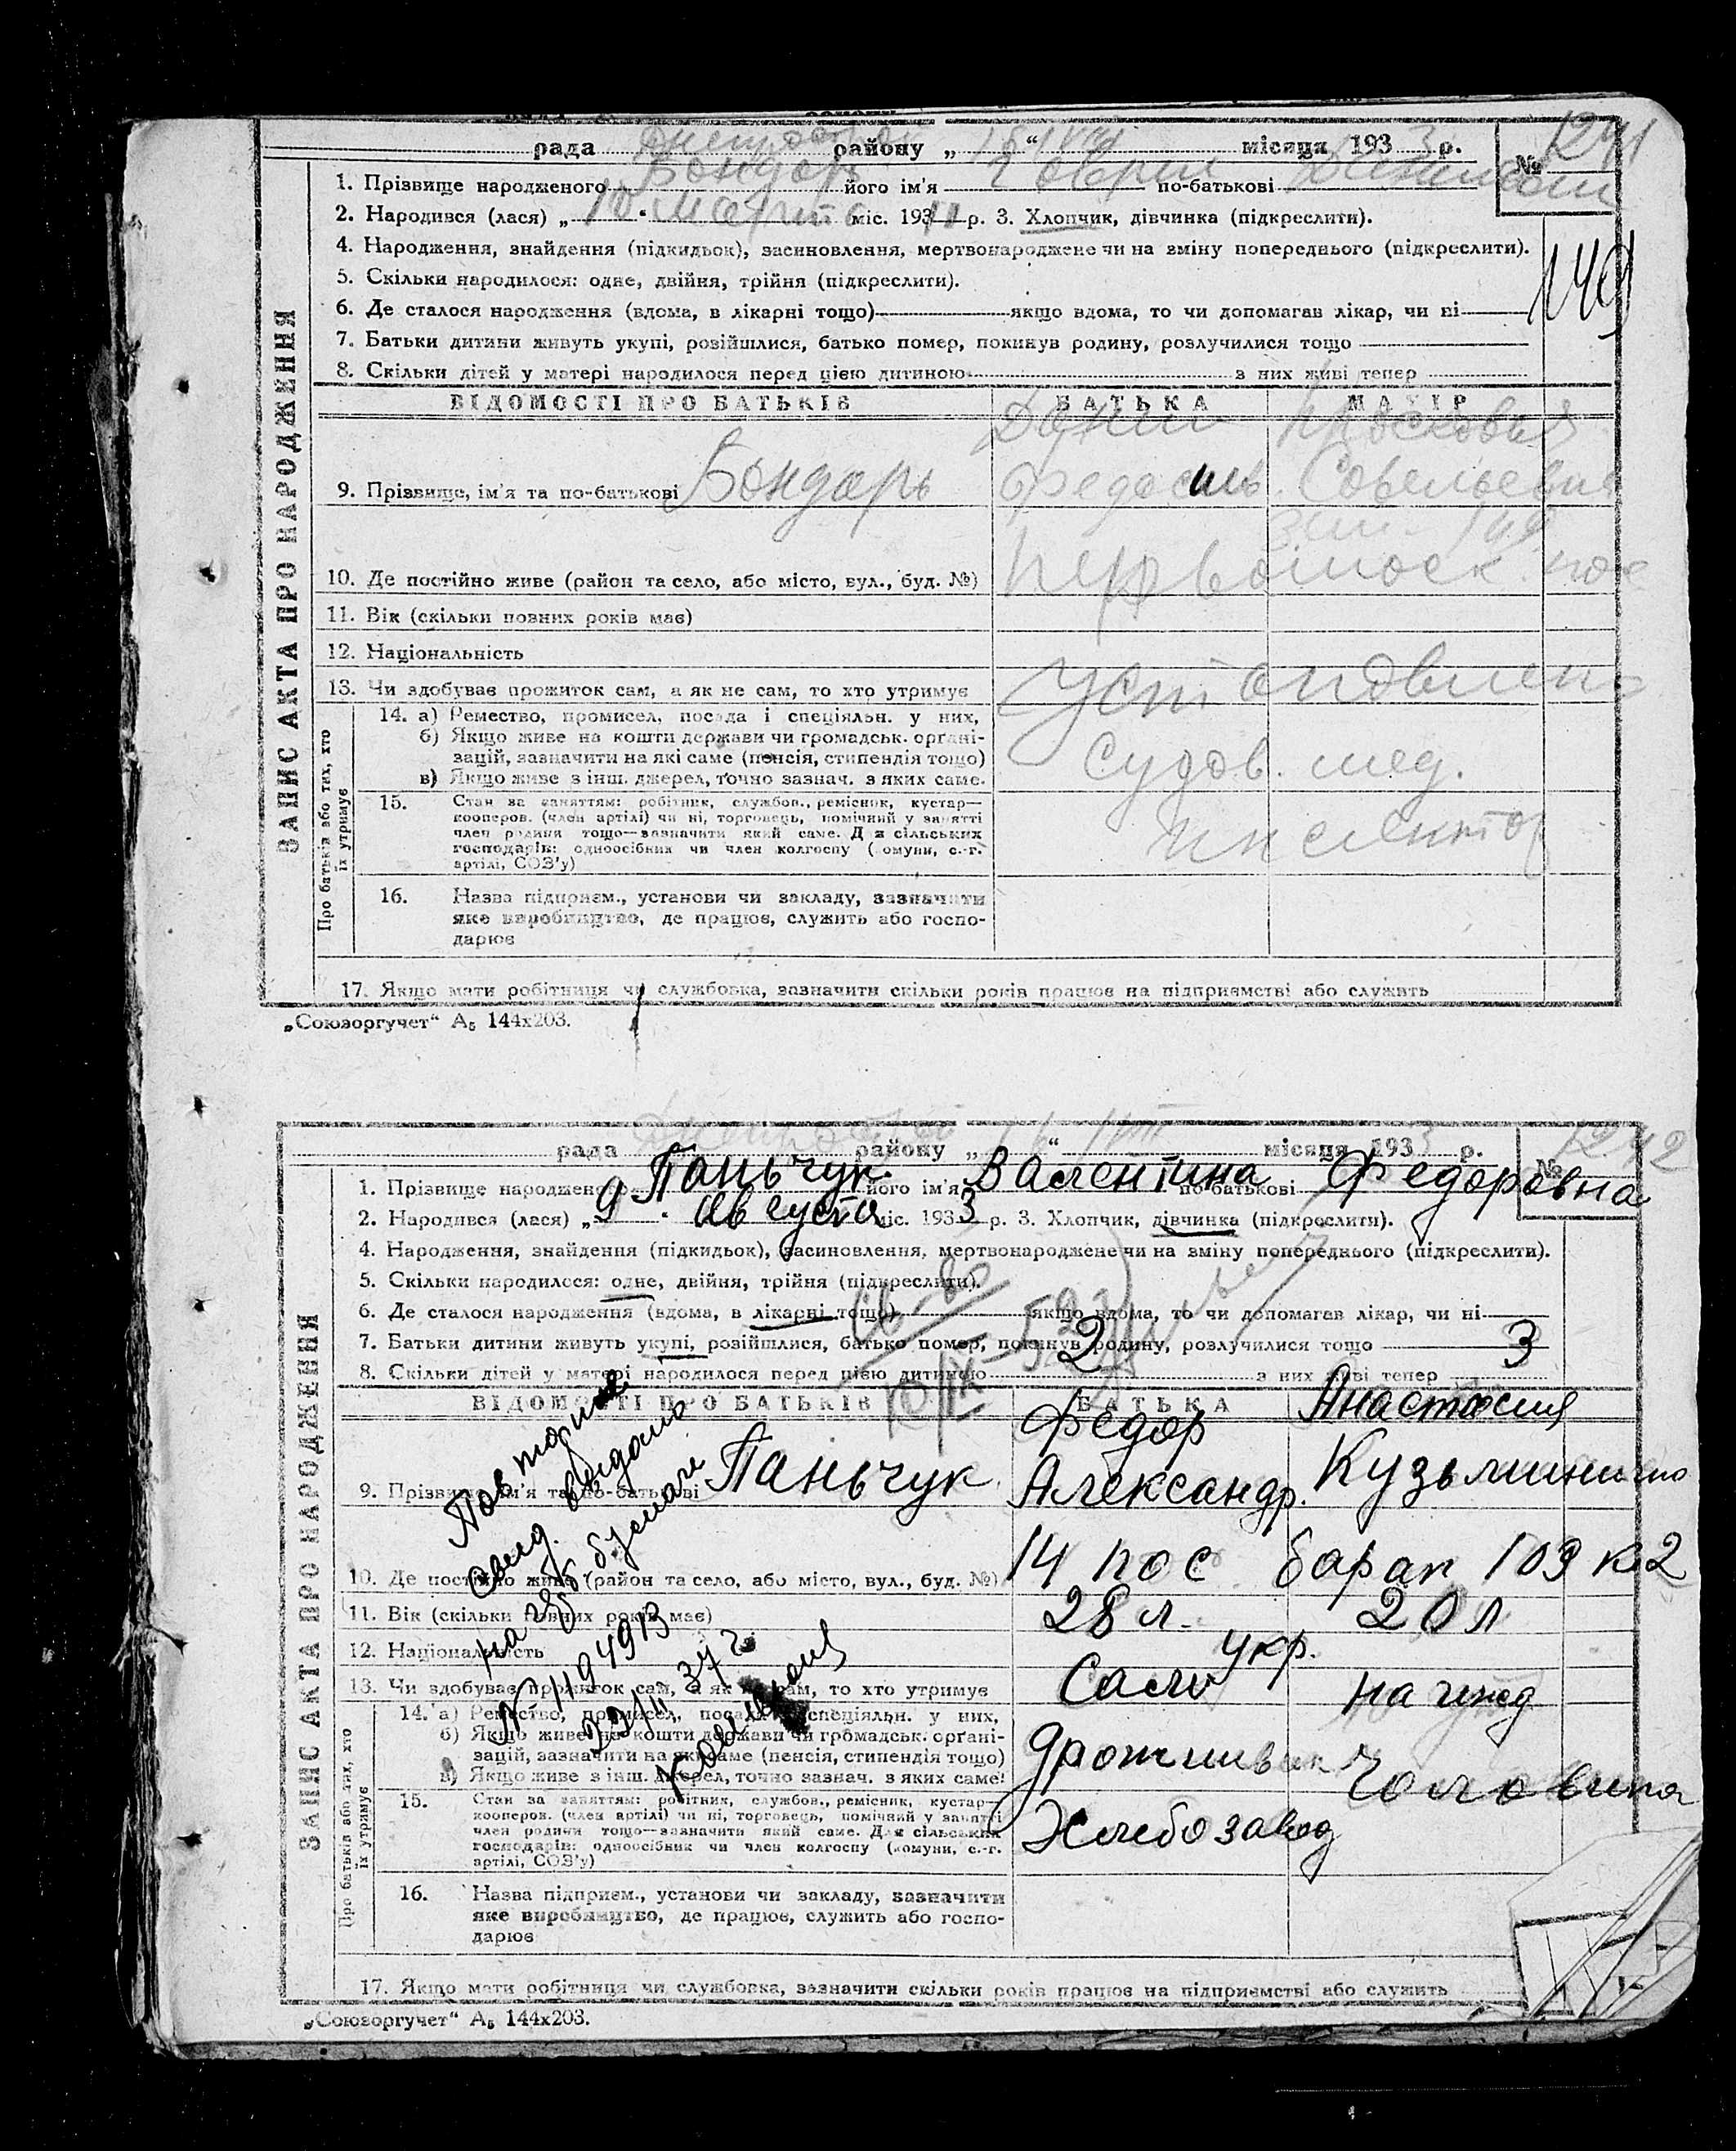 рада Днепрострой району „15“ VIII місяця 1933 р. № 1241
1. Прізвище народженого Бондарь його ім'я по-батькові
2. Народився (лася) „10“ Марта міс. 193 р. 3. Хлопчик, дівчинка (підкреслити).
149
4. Народження, знайдення (підкидьок), засиновлення, мертвонароджене чи на зміну попереднього (підкреслити).
5. Скільки народилося: одне, двійня, трійня (підкреслити).
6. Де сталося народження (вдома, в лікарні тощо) якщо вдома, то чи допомагав лікар, чи ні
7. Батьки дитини живуть укупі, розійшлися, батько помер, покинув родину, розлучилися тощо
8. Скільки дітей у матері народилося перед цією дитиною з них живі тепер
ЗАПИС АКТА ПРО НАРОДЖЕННЯ
ВІДОМОСТІ ПРО БАТЬКІВ БАТЬКА МАТІР
Данил Просковия
9. Прізвище, ім'я та по-батькові Бондарь Федосиев. Совельевна
10. Де постійно живе (район та село, або місто, вул., буд. №) Первомоск. пос
11. Вік (скільки повних років має)
12. Національність
13. Чи здобуває прожиток сам, а як не сам, то хто утримує Установлено
Про батьків або тих, хто їх утримує
14. а) Ремество, промисел, посада і спеціяльн. у них,
б) Якщо живе на кошти держави чи громадськ. орґані-
зацій, зазначити на які саме (пенсія, стипендія тощо) Судов. мед.
в) Якщо живе з інш. джерел, точно зазнач. з яких саме.
15. Стан за заняттям: робітник, службов., ремісник, кустар—
кооперов. (член артілі) чи ні, торговець, помічний у занятті
член родини тощо—зазначити який саме. Для сільських инспектор
господарів: одноосібник чи член колгоспу (комуни, с.-г.
артілі, СОЗ'у)
16. Назва підприєм., установи чи закладу, зазначити
яке виробництво, де працює, служить або госпо-
дарює
17. Якщо мати робітниця чи службовка, зазначити скільки років працює на підприємстві або служить
„Союзоргучет“ А₅ 144х203.
рада Днепрострой району „16“ VIII місяця 1933 р. № 1242
1. Прізвище народженого Паньчук його ім'я Валентина по-батькові Федоровна
2. Народився (лася) „9“ августа міс. 1933 р. 3. Хлопчик, дівчинка (підкреслити).
4. Народження, знайдення (підкидьок), засиновлення, мертвонароджене чи на зміну попереднього (підкреслити).
5. Скільки народилося: одне, двійня, трійня (підкреслити).
6. Де сталося народження (вдома, в лікарні тощо) якщо вдома, то чи допомагав лікар, чи ні
7. Батьки дитини живуть укупі, розійшлися, батько помер, покинув родину, розлучилися тощо
8. Скільки дітей у матері народилося перед цією дитиною 2 з них живі тепер 3
ЗАПИС АКТА ПРО НАРОДЖЕННЯ
ВІДОМОСТІ ПРО БАТЬКІВ БАТЬКА
Федор Анастосия
9. Прізвище, ім'я та по-батькові Паньчук Александр. Кузьминично
10. Де постійно живе (район та село, або місто, вул., буд. №) 14 пос барак 109 к 2
11. Вік (скільки повних років має) 28 л. 20 л
12. Національність укр.
13. Чи здобуває прожиток сам, а як не сам, то хто утримує Сам на ижд
Повторне
свид. выдано
на герббумаге
№ 1194913
22/II 37 г.
Про батьків або тих, хто їх утримує
14. а) Ремество, промисел, посада і спеціяльн. у них,
б) Якщо живе на кошти держави чи громадськ. орґані-
зацій, зазначити на які саме (пенсія, стипендія тощо) дрожживик
в) Якщо живе з інш. джерел, точно зазнач. з яких саме. Чоловика
15. Стан за заняттям: робітник, службов., ремісник, кустар—
кооперов. (член артілі) чи ні, торговець, помічний у занятті
член родини тощо—зазначити який саме. Для сільських Хлебозавод
господарів: одноосібник чи член колгоспу (комуни, с.-г.
артілі, СОЗ'у)
16. Назва підприєм., установи чи закладу, зазначити
яке виробництво, де працює, служить або госпо-
дарює
17. Якщо мати робітниця чи службовка, зазначити скільки років працює на підприємстві або служить
„Союзоргучет“ А₅ 144х203.